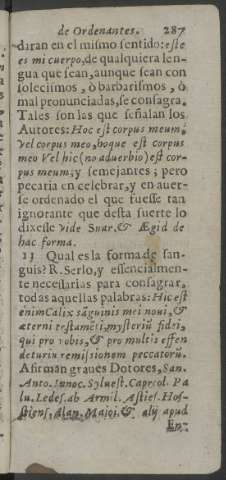 de Ordenantes. 287
diran en el mismo sentido: este
es mi cuerpo, de qualquiera len-
gua que sean, aunque sean con
soleciimos, ò barbarismos, ò
mal pronunciadas, se consagra.
Tales son las que señalan los
Autores: Hoc est corpus meum,
vel corpus meo, hoque est corpus
meo Vel hic (no aduerbio) est cor-
pus meum; y semejantes; pero
pecaria en celebrar, y en auer-
se ordenado el que fuesse tan
ignorante que desta suerte lo
dixesse vide Suar. & Ægid de
hac forma.
13 Qual es la forma de san-
guis? R. Serlo, y essencialmen-
te necessarias para consagrar,
todas aquellas palabras: Hic est
enim Calix sãguinis mei noui, &
æterni testamẽti, mysteriũ fidei,
qui pro vobis, & pro multis effen
detur in remissionem peccatorũ.
Afirman graues Dotores, San.
Anto. Innoc. Syluest. Capreol. Pa
lu. Ledes. ab Armil. Asties. Hos-
tiens, Alan. Maioi. & alij apud
En-